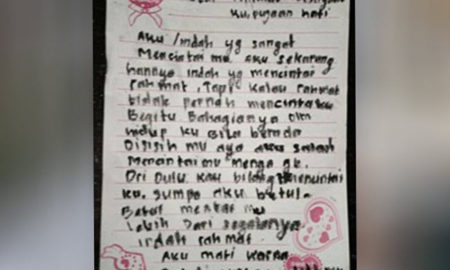 ku, pujaan hati
Aku Indah yg sangat
Mencintai mu aku sekarang
hanya indah yg mencintai
rahmat, Tapi kalau rahmat
tidak pernah mencintaku
Begitu Bahagianya
hidup ku Bila berada
Disisih mu aya aku salah
Mencintai mu
Dri Dulu kau bilang mencintai
ku, sumpa aku betul-
Betul
lebih Dari segalanya
indah rahmat
Aku mati karna